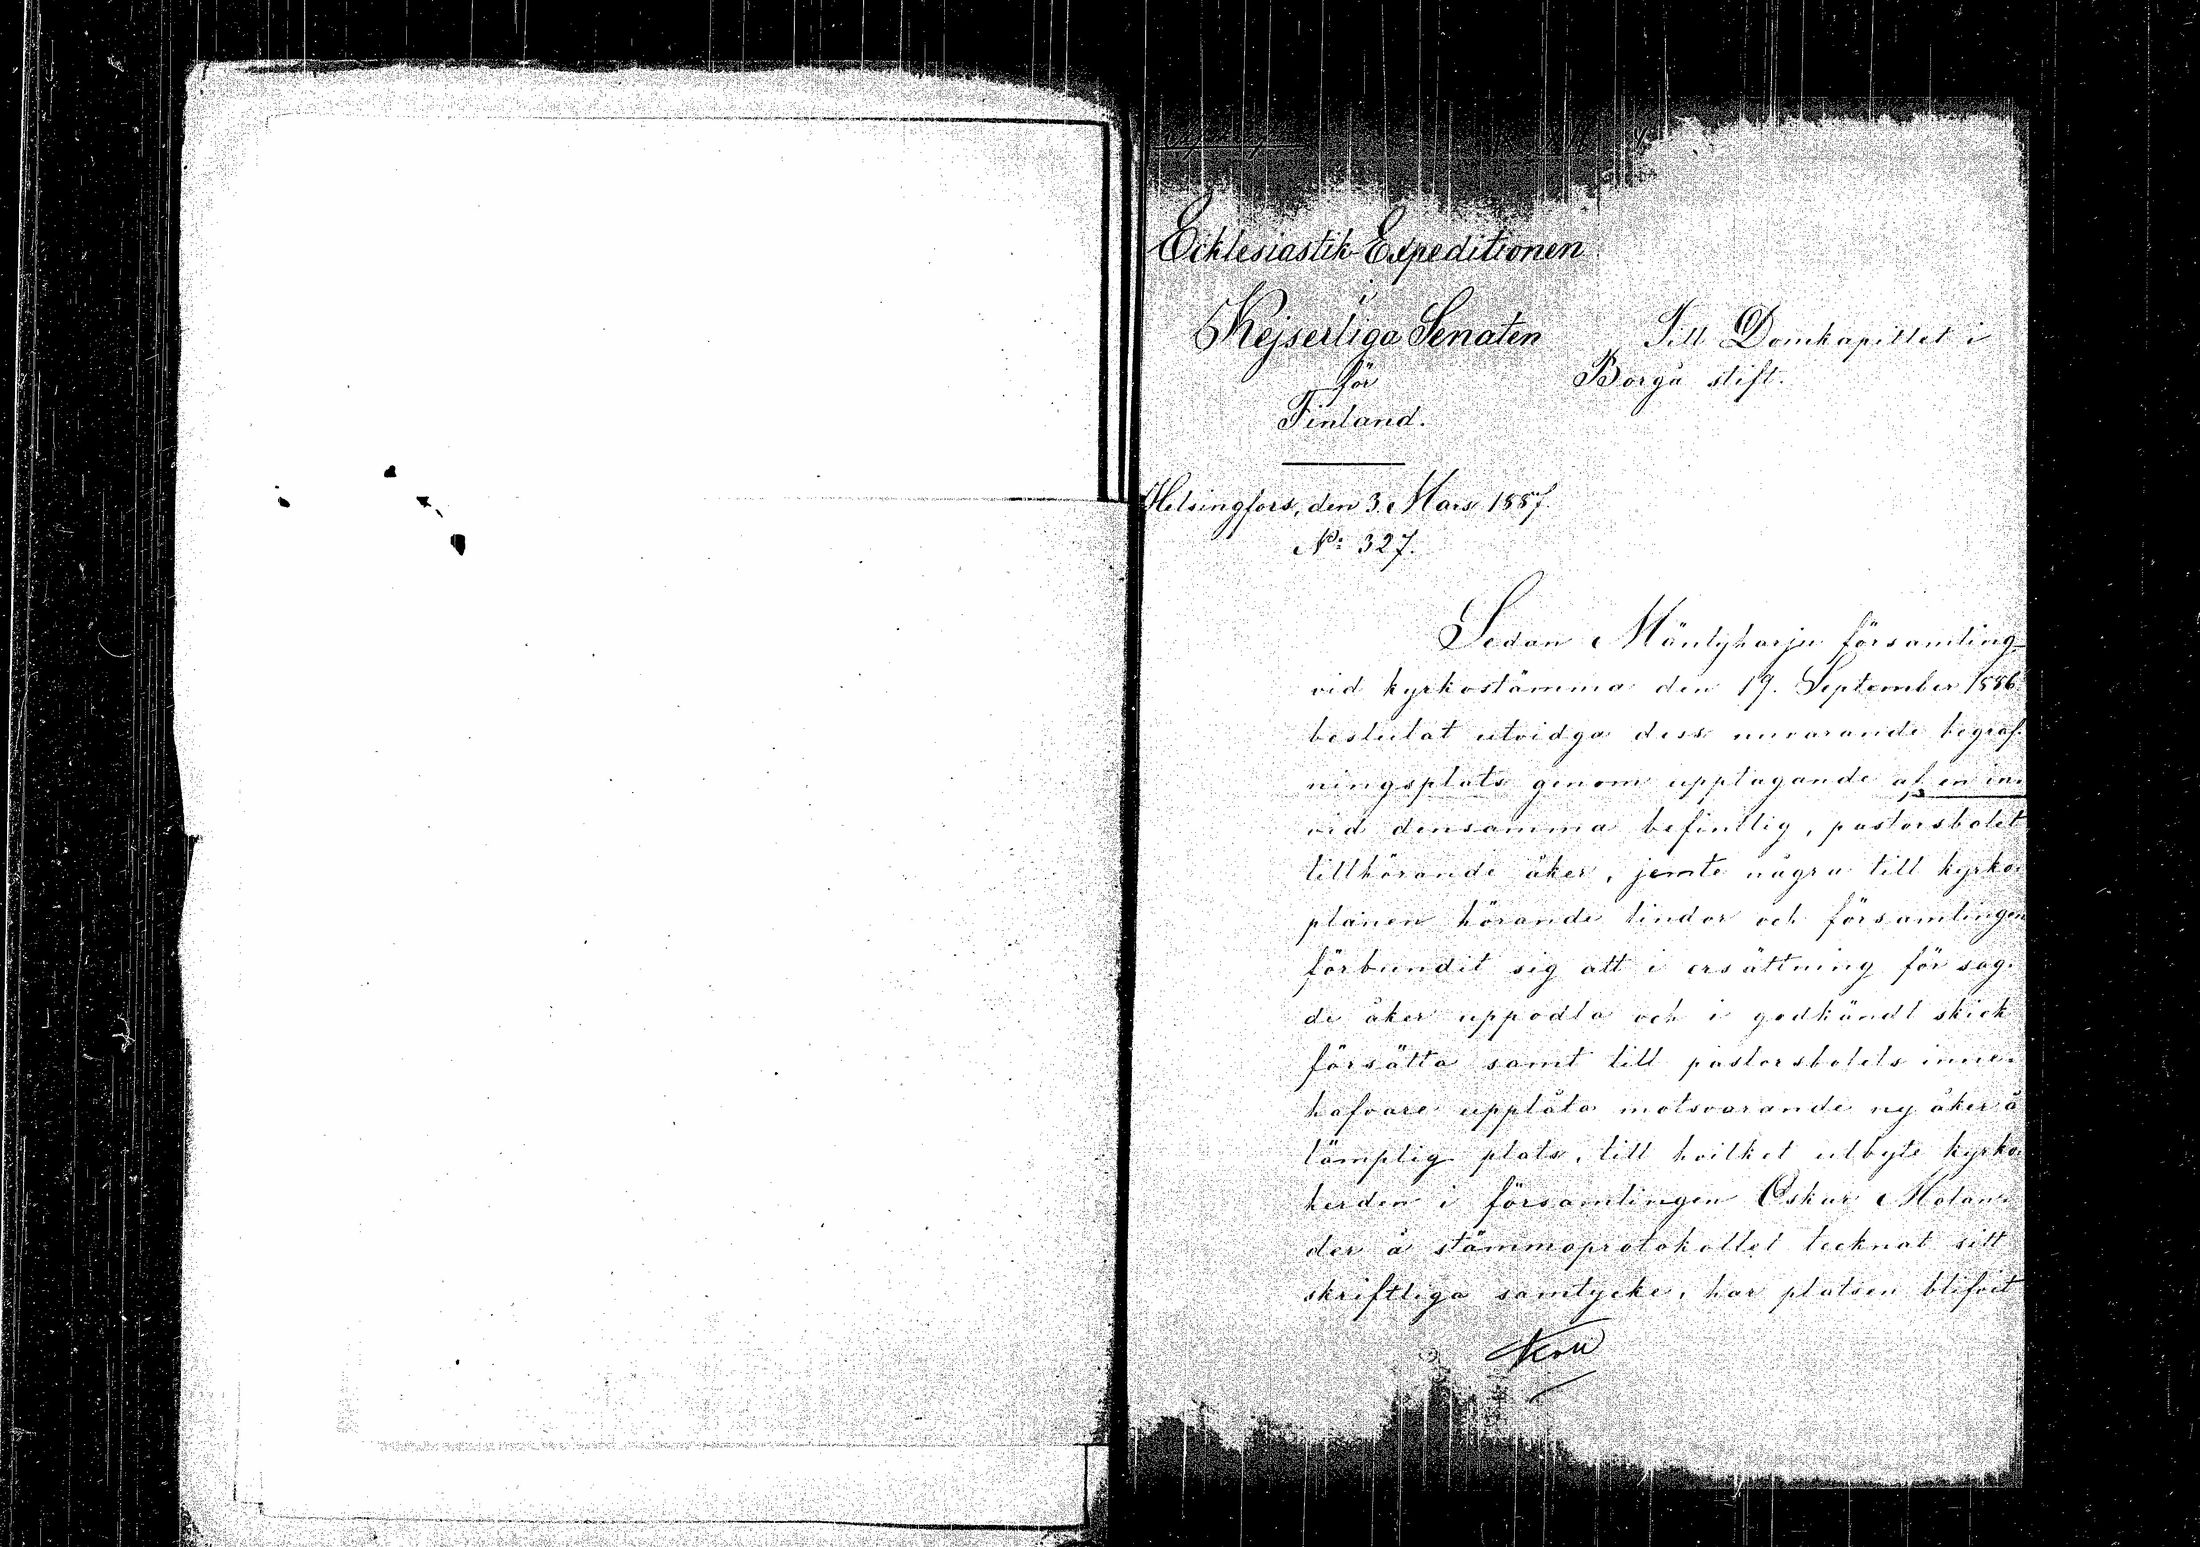 Ecklesiastik-Expeditionen
i
Kejserliga Senaten
för
Finland.
Helsingfors, den 3. Mars 1887.
No: 327.
Till Domkapitlet i
Borgå stift.
Sedan Mäntyharju församling
vid kyrkostämma den 19. September 1886
beslutat utvidga dess nuvarande begraf-
ningsplats genom upptagande af en in-
vid densamma befintlig, pastorsbolet
tillhörande åker, jemte några till kyrko-
planen hörande lindor och församlingen
förbundit sig att i ersättning för sag-
de åker uppodla och i godkändt skick
försätta samt till pastorsbolets inne-
hafvare upplåta motsvarande ny åker å
lämplig plats, till hvilket utbyte kyrko-
herden i församlingen Oskar Molan-
der å stämmoprotokollet tecknat sitt
skriftliga samtycke, har platsen blifvit